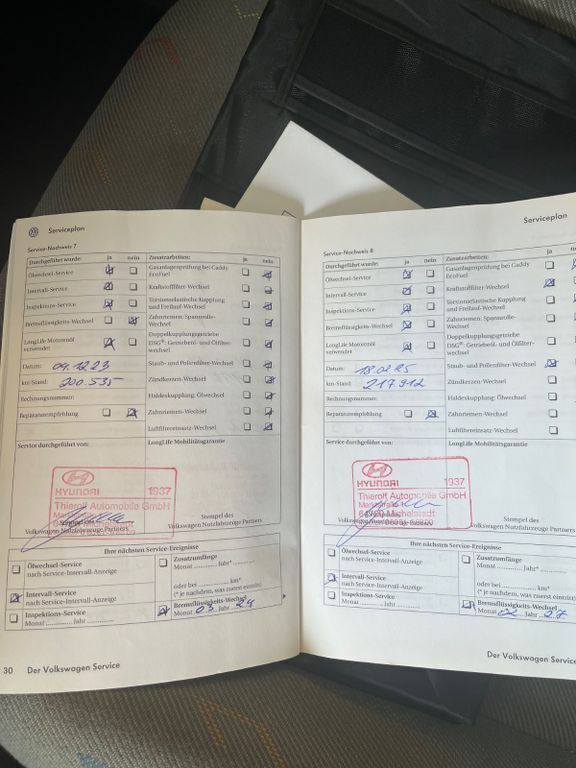 Serviceplan
Service-Nachweis 7
Durchgeführt wurde: ja nein Zusatzarbeiten: ja nein
Ölwechsel-Service Gasanlagenprüfung bei Caddy EcoFuel
Intervall-Service Kraftstofffilter-Wechsel
Inspektions-Service Torsionselastische Kupplung und Freilauf-Wechsel
Bremsflüssigkeits-Wechsel Zahnriemen- Spannrolle-Wechsel
LongLife Motorenöl verwendet Doppelkupplungsgetriebe DSG®: Getriebeöl- und Ölfilterwechsel
Datum: 04.12.23 Staub- und Pollenfilter-Wechsel
km-Stand: 200.535 Zündkerzen-Wechsel
Rechnungsnummer: Haldexkupplung: Ölwechsel
Reparaturempfehlung Zahnriemen-Wechsel
Luftfiltereinsatz-Wechsel
Service durchgeführt von: LongLife Mobilitätsgarantie
HYUNDAI 1937
Thierolf Automobile GmbH
Stempel des
Volkswagen Nutzfahrzeuge Partners
Stempel des
Volkswagen Nutzfahrzeuge Partners
Ihre nächsten Service-Ereignisse
Ölwechsel-Service
nach Service-Intervall-Anzeige
Zusatzumfänge
Monat Jahr*
oder bei km*
(* je nachdem, was zuerst eintritt)
Intervall-Service
nach Service-Intervall-Anzeige
Inspektions-Service
Monat Jahr
Bremsflüssigkeits-Wechsel
Monat 03 Jahr 24
30 Der Volkswagen Service
Serviceplan
Service-Nachweis 8
Durchgeführt wurde: ja nein Zusatzarbeiten: ja
Ölwechsel-Service Gasanlagenprüfung bei Caddy EcoFuel
Intervall-Service Kraftstofffilter-Wechsel
Inspektions-Service Torsionselastische Kupplung und Freilauf-Wechsel
Bremsflüssigkeits-Wechsel Zahnriemen- Spannrolle-Wechsel
LongLife Motorenöl verwendet Doppelkupplungsgetriebe DSG®: Getriebeöl- und Ölfilter-wechsel
Datum: 18.02.25 Staub- und Pollenfilter-Wechsel
km-Stand: 217.912 Zündkerzen-Wechsel
Rechnungsnummer: Haldexkupplung: Ölwechsel
Reparaturempfehlung Zahnriemen-Wechsel
Luftfiltereinsatz-Wechsel
Service durchgeführt von: LongLife Mobilitätsgarantie
HYUNDAI 1937
Thierolf Automobile GmbH
64720 Michelstadt
Volkswagen Nutzfahrzeuge Partners
Stempel des
Volkswagen Nutzfahrzeuge Partners
Ihre nächsten Service-Ereignisse
Ölwechsel-Service
nach Service-Intervall-Anzeige
Zusatzumfänge
Monat Jahr*
oder bei km*
(* je nachdem, was zuerst eintritt)
Intervall-Service
nach Service-Intervall-Anzeige
Inspektions-Service
Monat Jahr
Bremsflüssigkeits-Wechsel
Monat 02 Jahr 27
Der Volkswagen Service